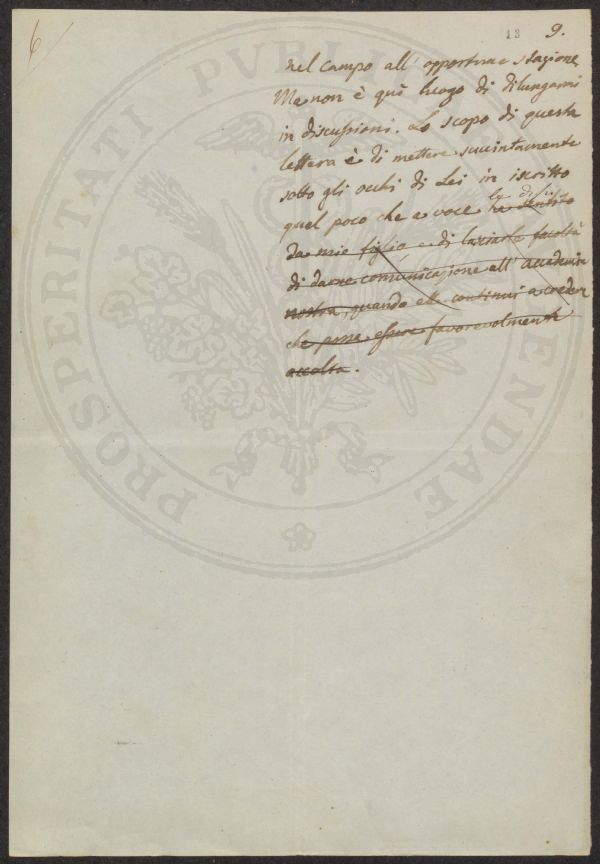 6
13
9.
nel campo all' opportuna stagione
Ma non è quì luogo di dilungarmi
in discussioni. Lo scopo di questa
lettera è di mettere succintamente
sotto gli occhi di Lei in iscritto
quel poco che a voce ha sentito
le dissi
da mio figlio e di lasciarle facoltà
di darne comunicazione all' accademia
nostra, quando ella continui a creder
che possa essere favorevolmente
accolta.
PROSPERITATI PVBLICAE AVGENDAE